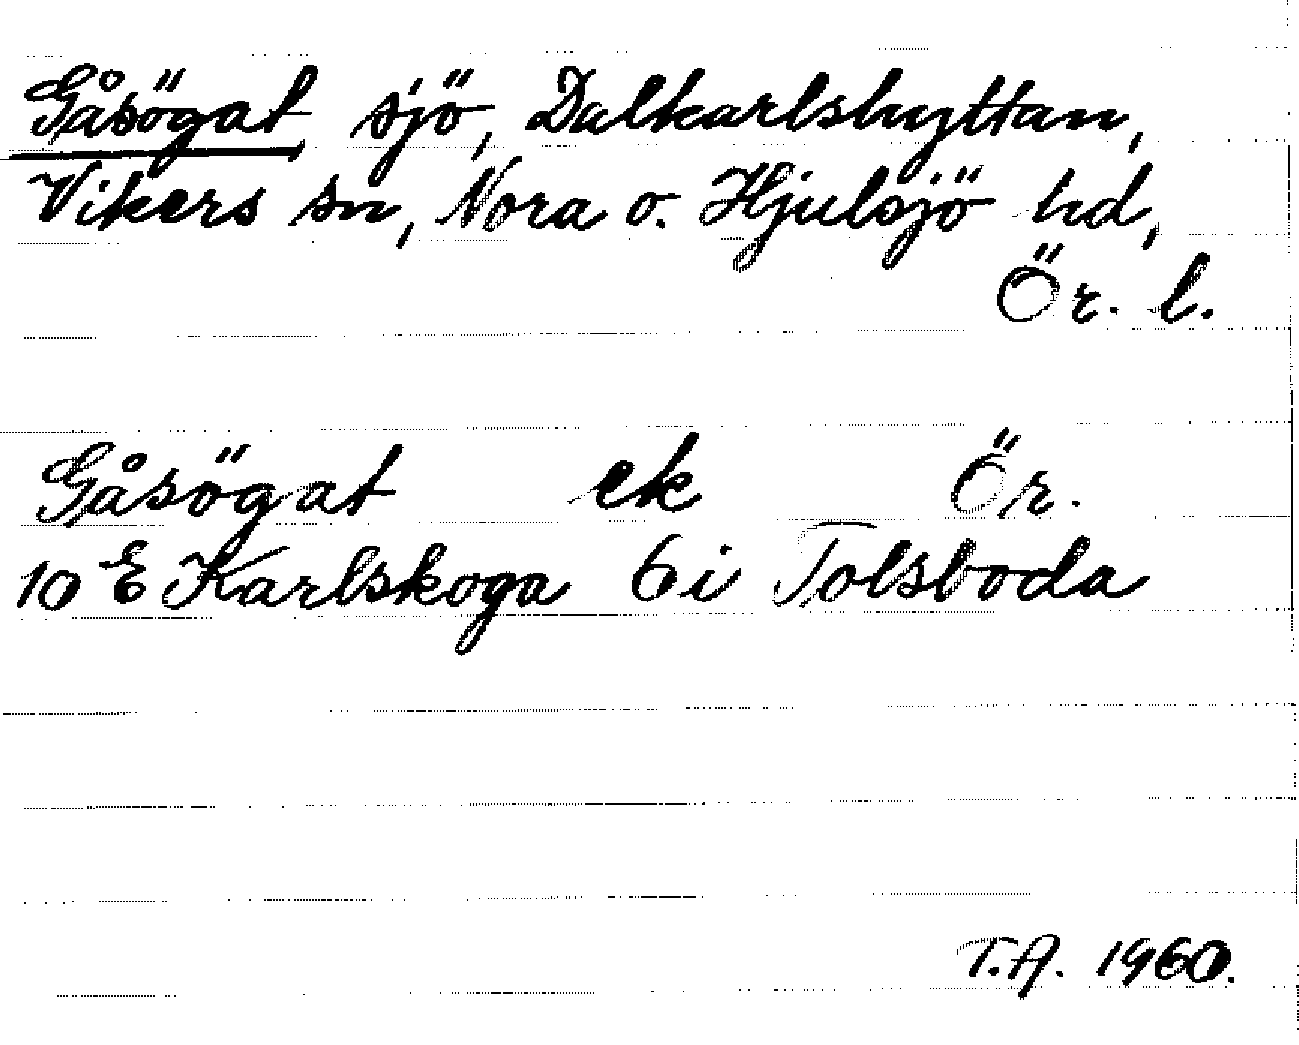 Gåsögat, sjö, Dalkarlshyttan,
Vikers sn, Nora o. Hjulsjö hd,
Ör. l.
Gåsögat ek Ör.
10 E Karlskoga 6 i Tolsboda
T.A. 1960.